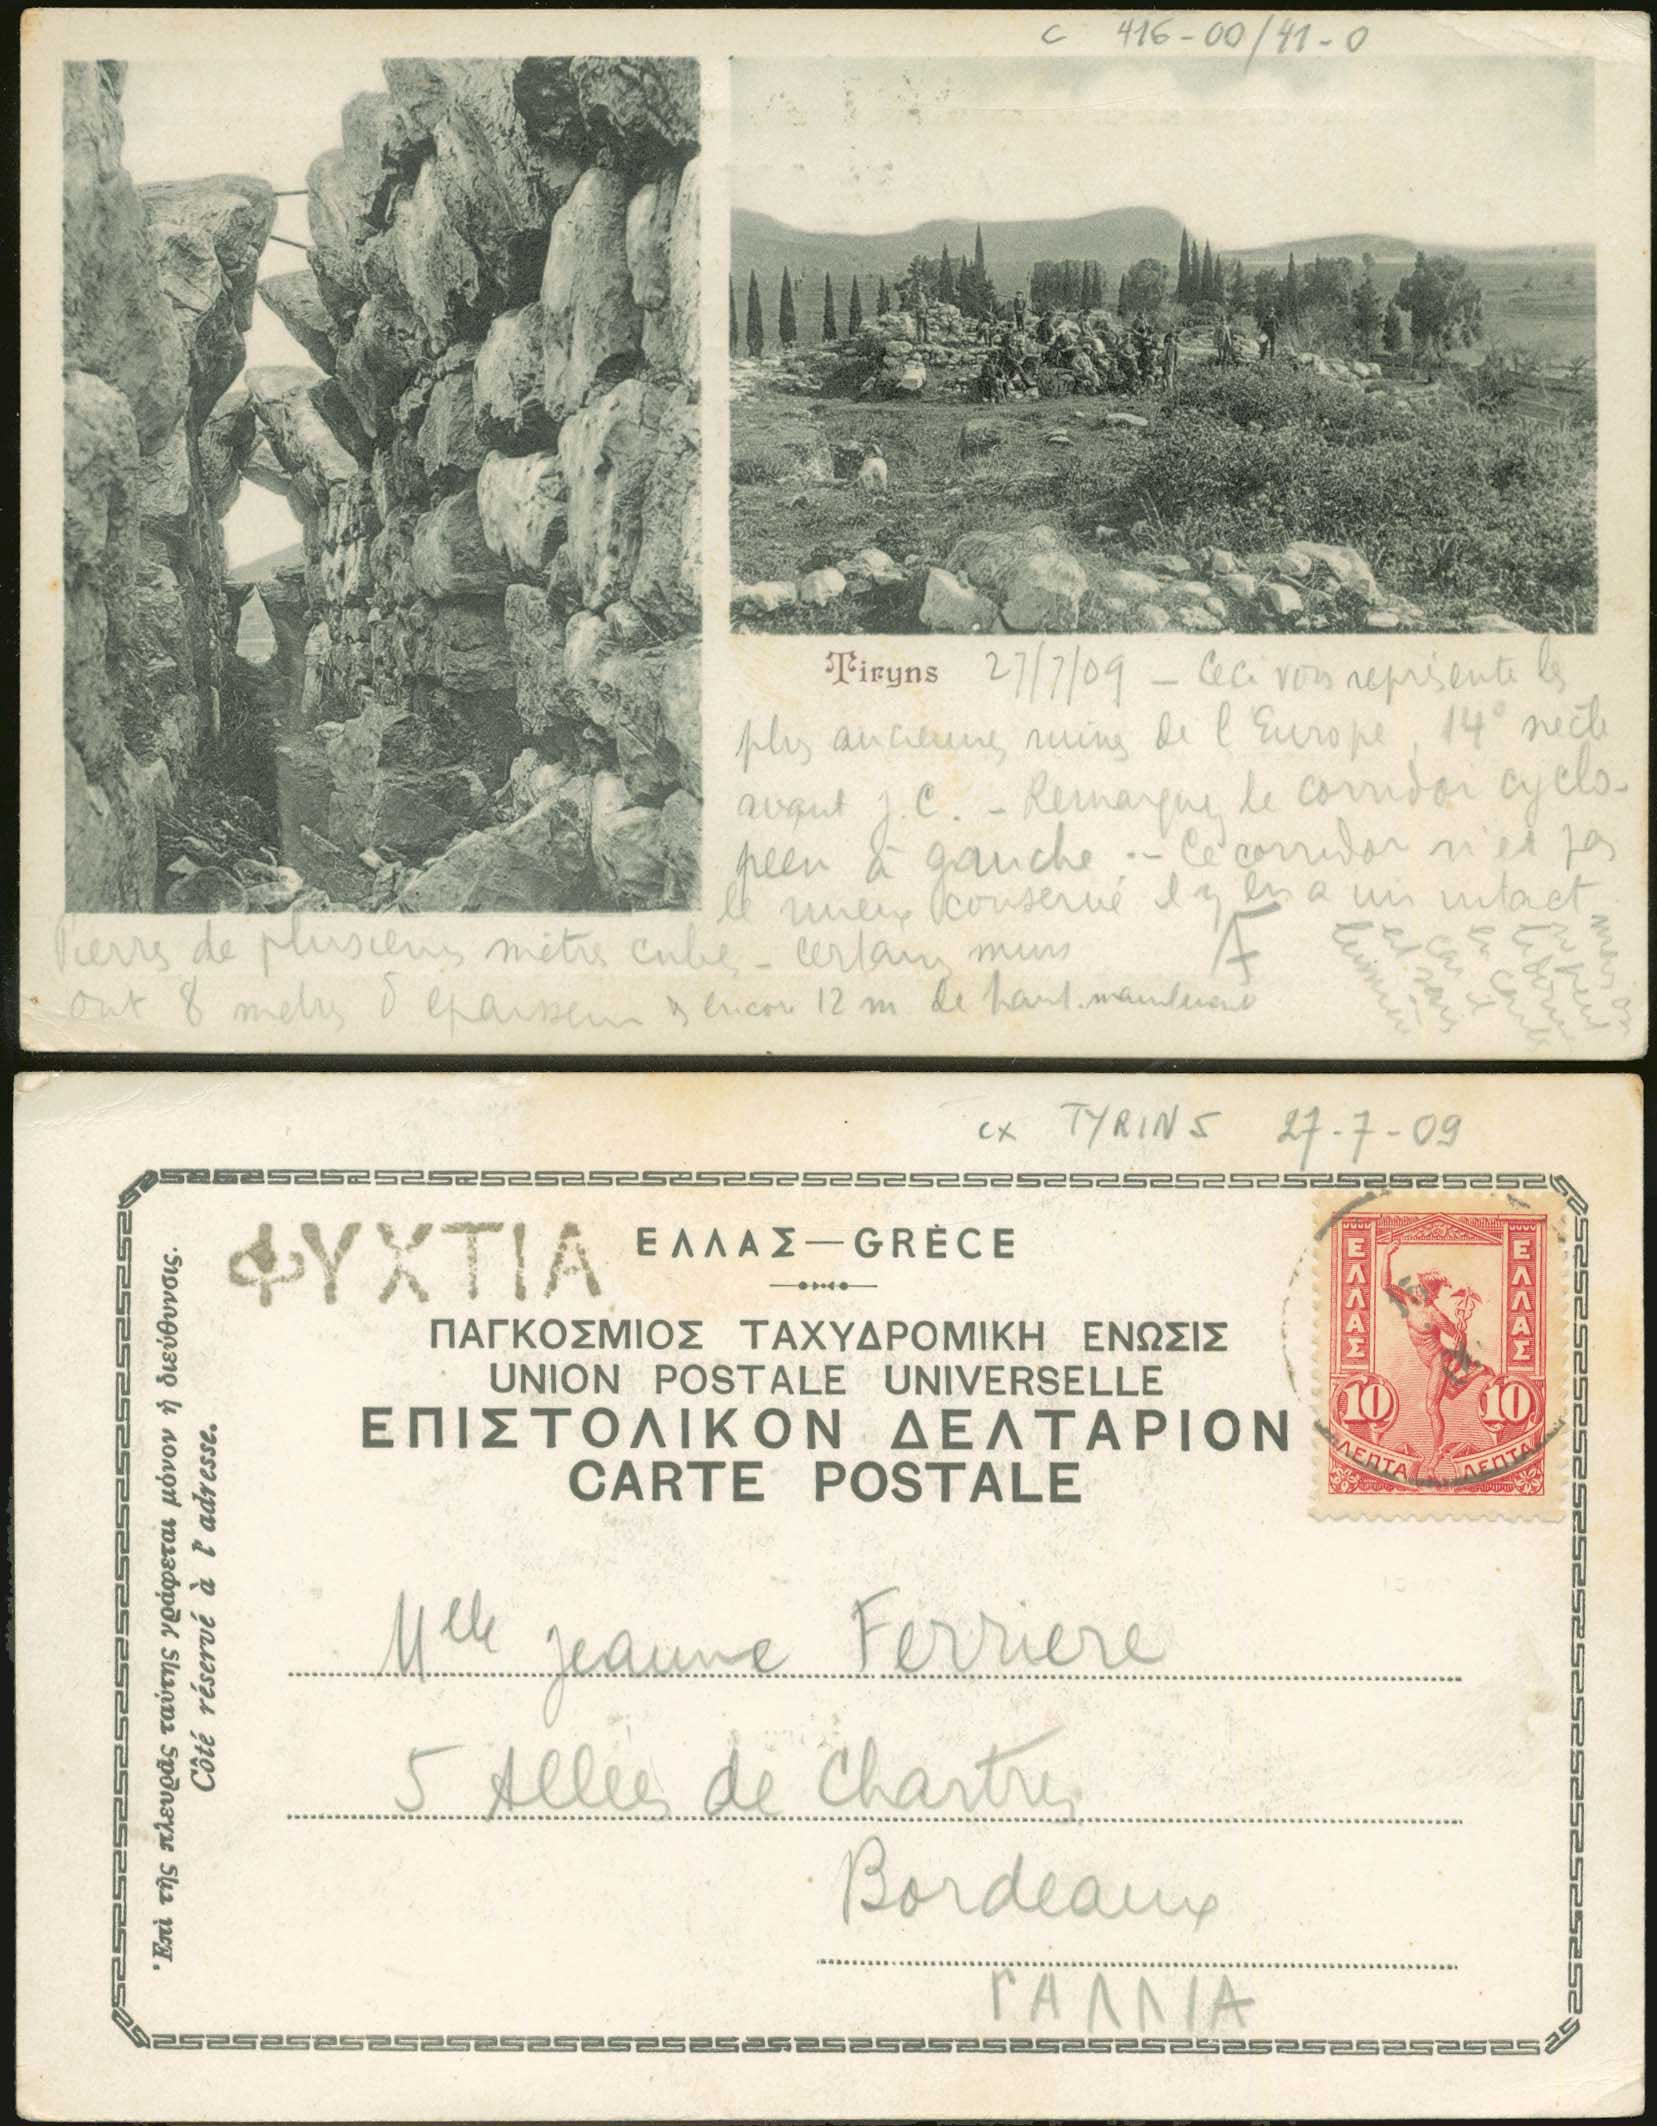 c 416-00/41-0
Tiryns 27/7/09 - Ceci vous représente les
plus anciennes ruines de l'Europe, 14e siècle
avant J.C. - Remarquez le corridor cyclo-
peen à gauche. - Ce corridor n'est pas
le mieux conservé il y en a un intact
mais on
ne peut
Pierres de plusieurs mètres cubes - certains murs
ont 8 metres d'epaisseur & encore 12 m de haut. maintenant
cx TYRINS 27-7-09
ΦΥΧΤΙΑ
ΕΛΛΑΣ — GRÈCE
ΠΑΓΚΟΣΜΙΟΣ ΤΑΧΥΔΡΟΜΙΚΗ ΕΝΩΣΙΣ
UNION POSTALE UNIVERSELLE
ΕΠΙΣΤΟΛΙΚΟΝ ΔΕΛΤΑΡΙΟΝ
CARTE POSTALE
ΕΛΛΑΣ ΕΛΛΑΣ
10 10
ΛΕΠΤΑ ΛΕΠΤΑ
Ἐπὶ τῆς πλευρᾶς ταύτης γράφεται μόνον ἡ διεύθυνσις.
Côté réservé à l'adresse.
Mlle Jeanne Ferriere
5 Allées de Chartres
Bordeaux
ΓΑΛΛΙΑ